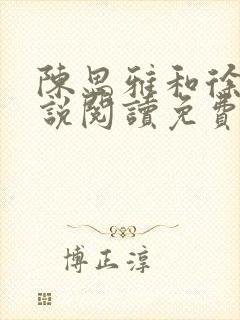 陳思雅和徐
說閱讀免費
博正淳